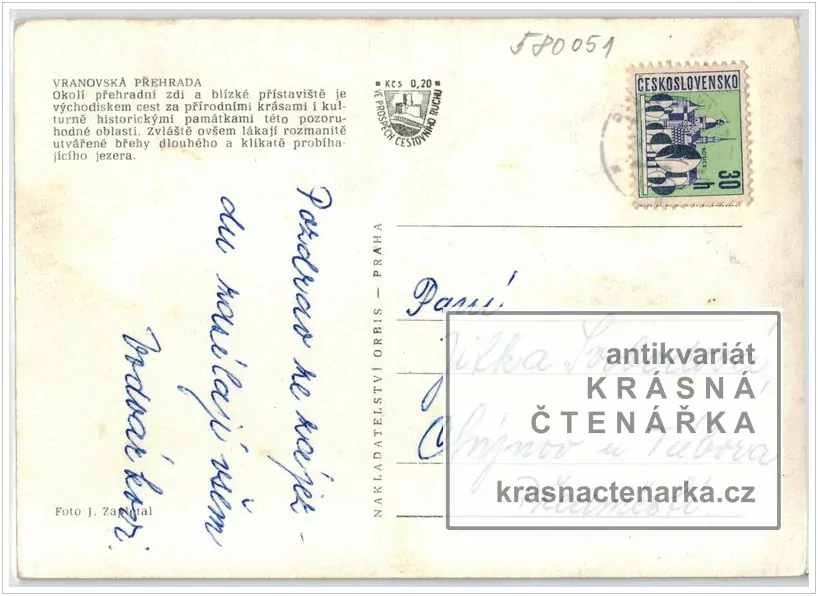 580051
VRANOVSKÁ PŘEHRADA
Okolí přehradní zdi a blízké přístaviště je
východiskem cest za přírodními krásami i kul-
turně historickými památkami této pozoru-
hodné oblasti. Zvláště ovšem lákají rozmanitě
utvářené břehy dlouhého a klikatě probíha-
jícího jezera.
Kčs 0,20
VE PROSPĚCH CESTOVNÍHO RUCHU
ČESKOSLOVENSKO
KOŠICE
30 h
Pozdrav ze zájez-
du zasílají všem
Vodvárkovi.
NAKLADATELSTVÍ ORBIS — PRAHA
Paní
Jitka Svobodová
Chýnov u Tábora
antikvariát
KRÁSNÁ
ČTENÁŘKA
krasnactenarka.cz
Foto J. Zapletal